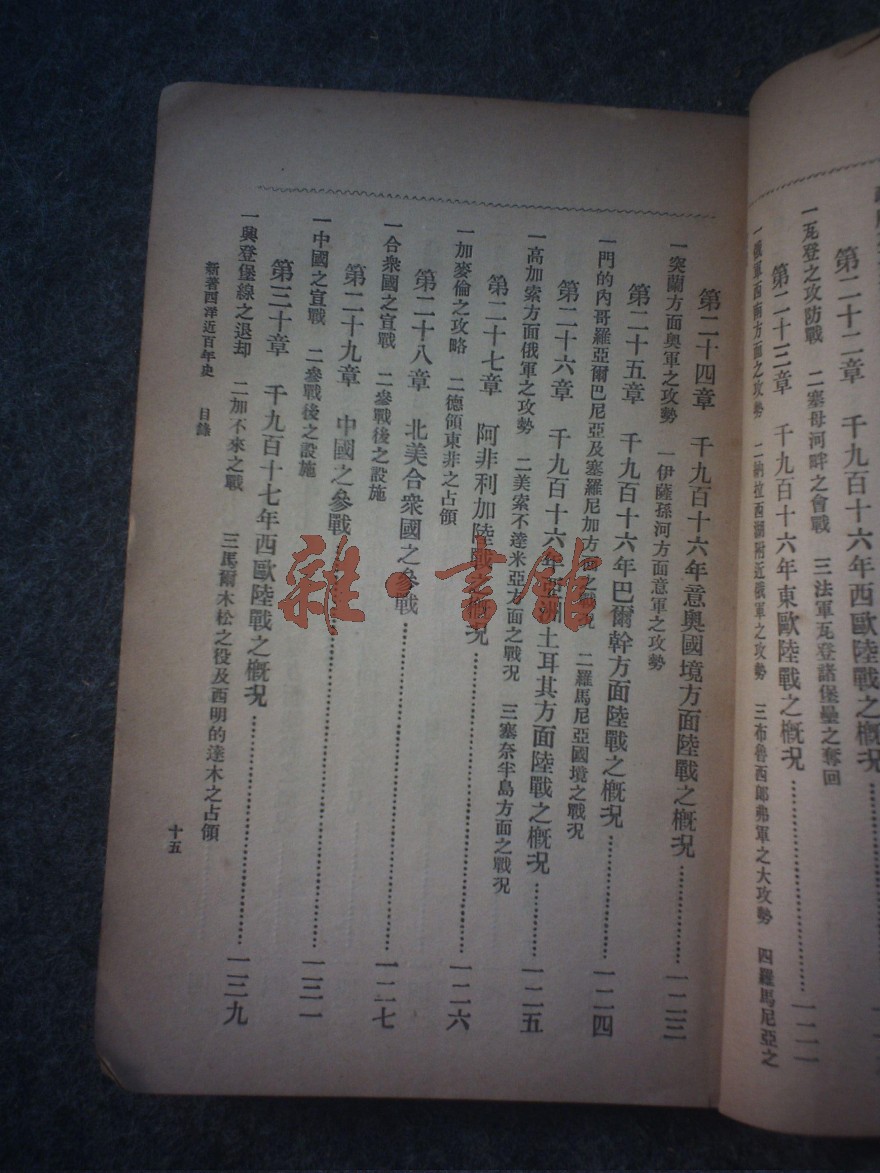 第二十二章　千九百十六年西歐陸戰之概況
一瓦登之攻防戰　二塞母河畔之會戰　三法軍瓦登諸堡壘之奪回
第二十三章　千九百十六年東歐陸戰之概況…………一二一
一俄軍西南方面之攻勢　二納拉西湖附近俄軍之攻勢　三布魯西郎弗軍之大攻勢　四羅馬尼亞之
第二十四章　千九百十六年意奧國境方面陸戰之概況…………一二三
一突蘭方面奧軍之攻勢　一伊薩孫河方面意軍之攻勢
第二十五章　千九百十六年巴爾幹方面陸戰之概況…………一二四
一門的內哥羅亞爾巴尼亞及塞羅尼加方面之戰況　二羅馬尼亞國境之戰況
第二十六章　千九百十六年亞洲土耳其方面陸戰之概況…………一二五
一高加索方面俄軍之攻勢　二美索不達米亞方面之戰況　三塞奈半島方面之戰況
第二十七章　阿非利加陸戰之概況…………一二六
一加麥倫之攻略　二德領東非之占領
第二十八章　北美合衆國之參戰…………一二七
一合衆國之宣戰　二參戰後之設施
第二十九章　中國之參戰…………一三一
一中國之宣戰　二參戰後之設施
第三十章　千九百十七年西歐陸戰之概況…………一三九
一興登堡線之退却　二加不來之戰　三馬爾木松之役及西明的達木之占領
新著西洋近百年史　目錄
十五
雜·書館